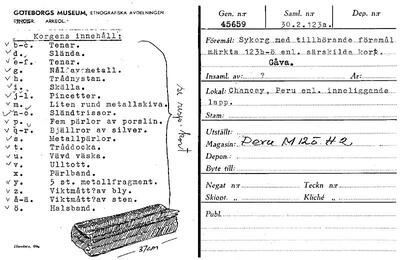 GÖTEBORGS MUSEUM, ETNOGRAFISKA AVDELNINGEN
ARKEOL.
Korgens innehåll:
b-c. Tenar.
d. Slända.
e-f. Tenar.
g. Nål av metall.
h. Trådnystan.
i. Skälla.
j-l. Pincetter.
m. Liten rund metallskiva.
n-o. Sländtrissor.
p. Fem pärlor av porslin.
q-r. Bjällror av silver.
s. Metallpärlor.
t. Tråddocka.
u. Vävd väska.
v. Ulltott.
x. Pärlband.
y. 5 st. metallfragment.
z. Viktmått?av bly.
å-ä. Viktmått?av sten.
ö. Halsband.
37cm
Gen. n:r
45659
Saml. n:r
30.2.123a.
Dep. n:r
Föremål: Sykorg med tillhörande föremål
märkta 123b-ö enl. särskilda kort.
Gåva.
Insaml. av: ?
År:
Lokal: Chancay, Peru enl. inneliggande
lapp.
Stam:
Utställt:
Magasin: Peru M125 H2
Depon.:
Byte till:
Negat n:r
Teckn n:r
Skiopt. n:r
Kliché
Publ.